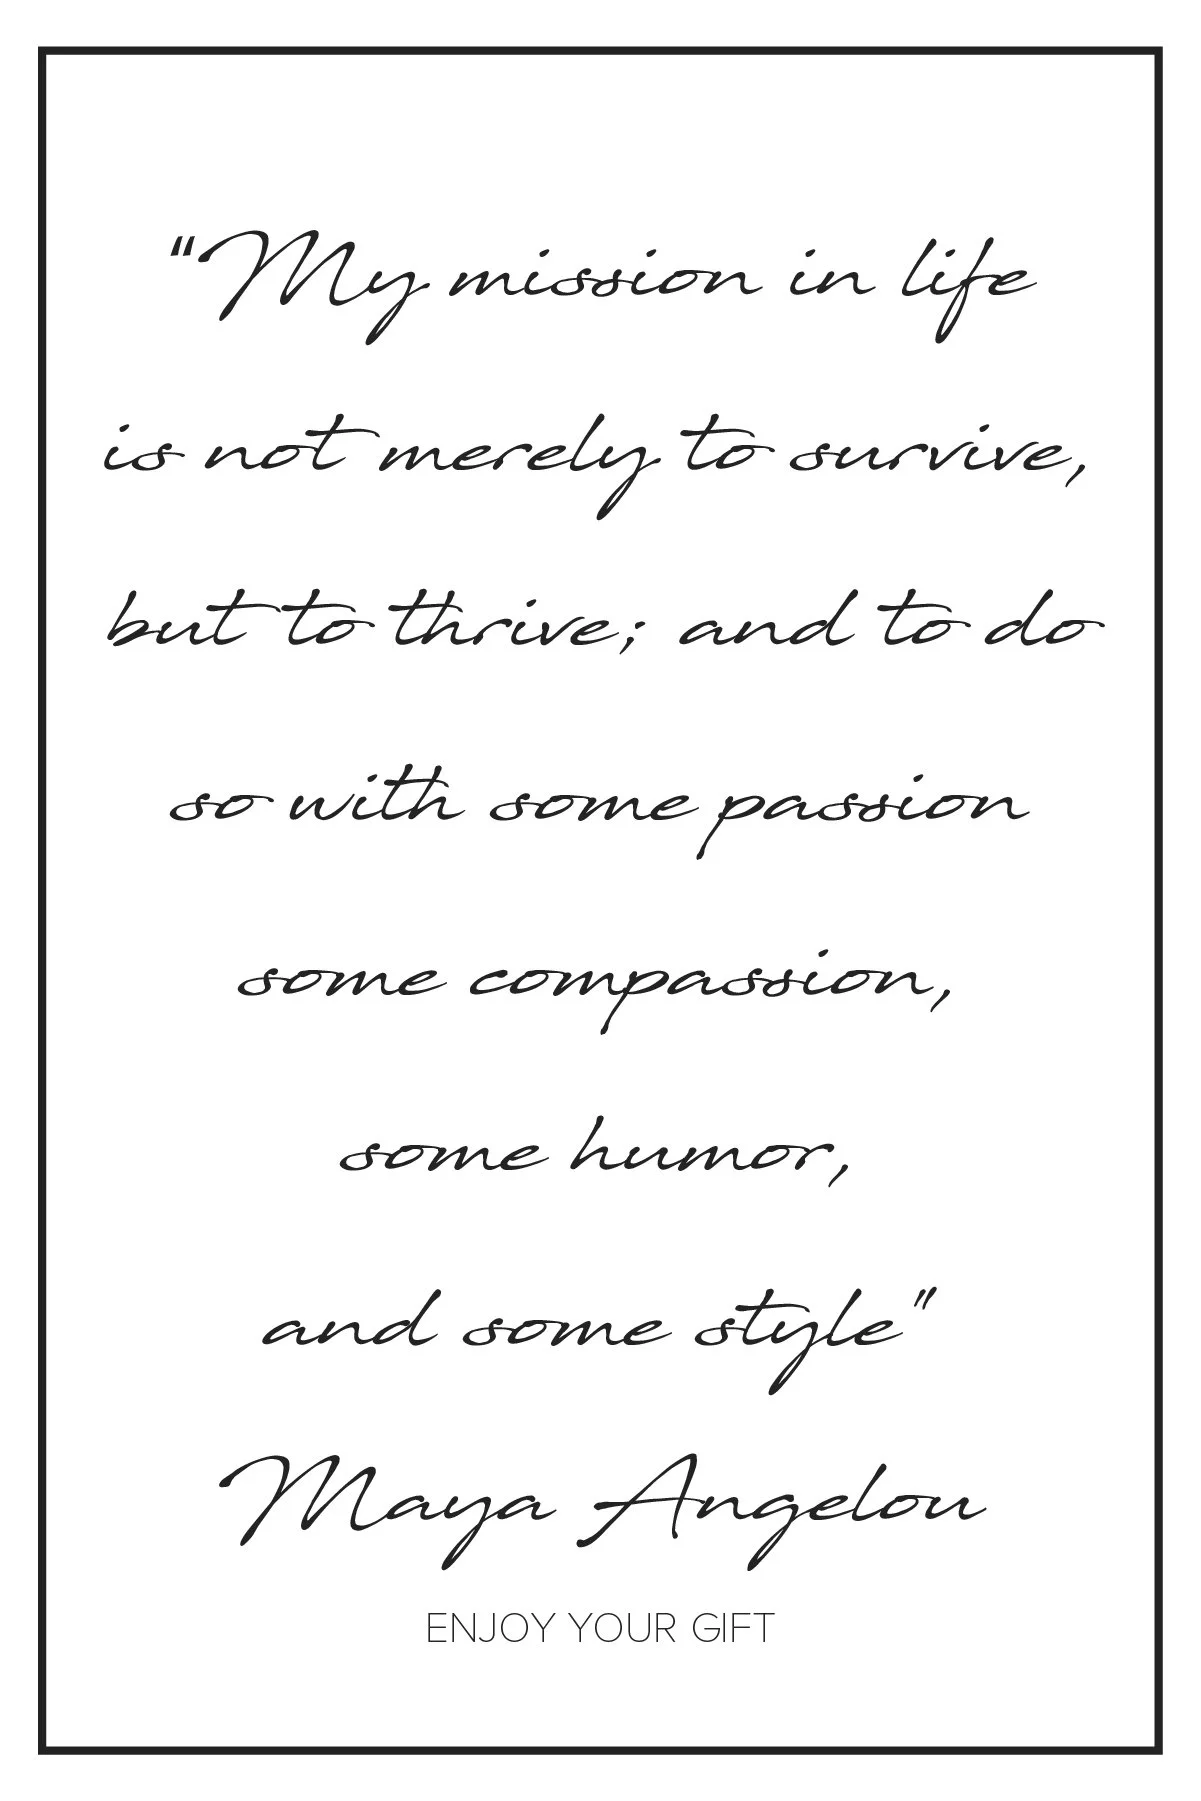 "My mission in life
is not merely to survive,
but to thrive; and to do
so with some passion
some compassion,
some humor,
and some style"
Maya Angelou
ENJOY YOUR GIFT